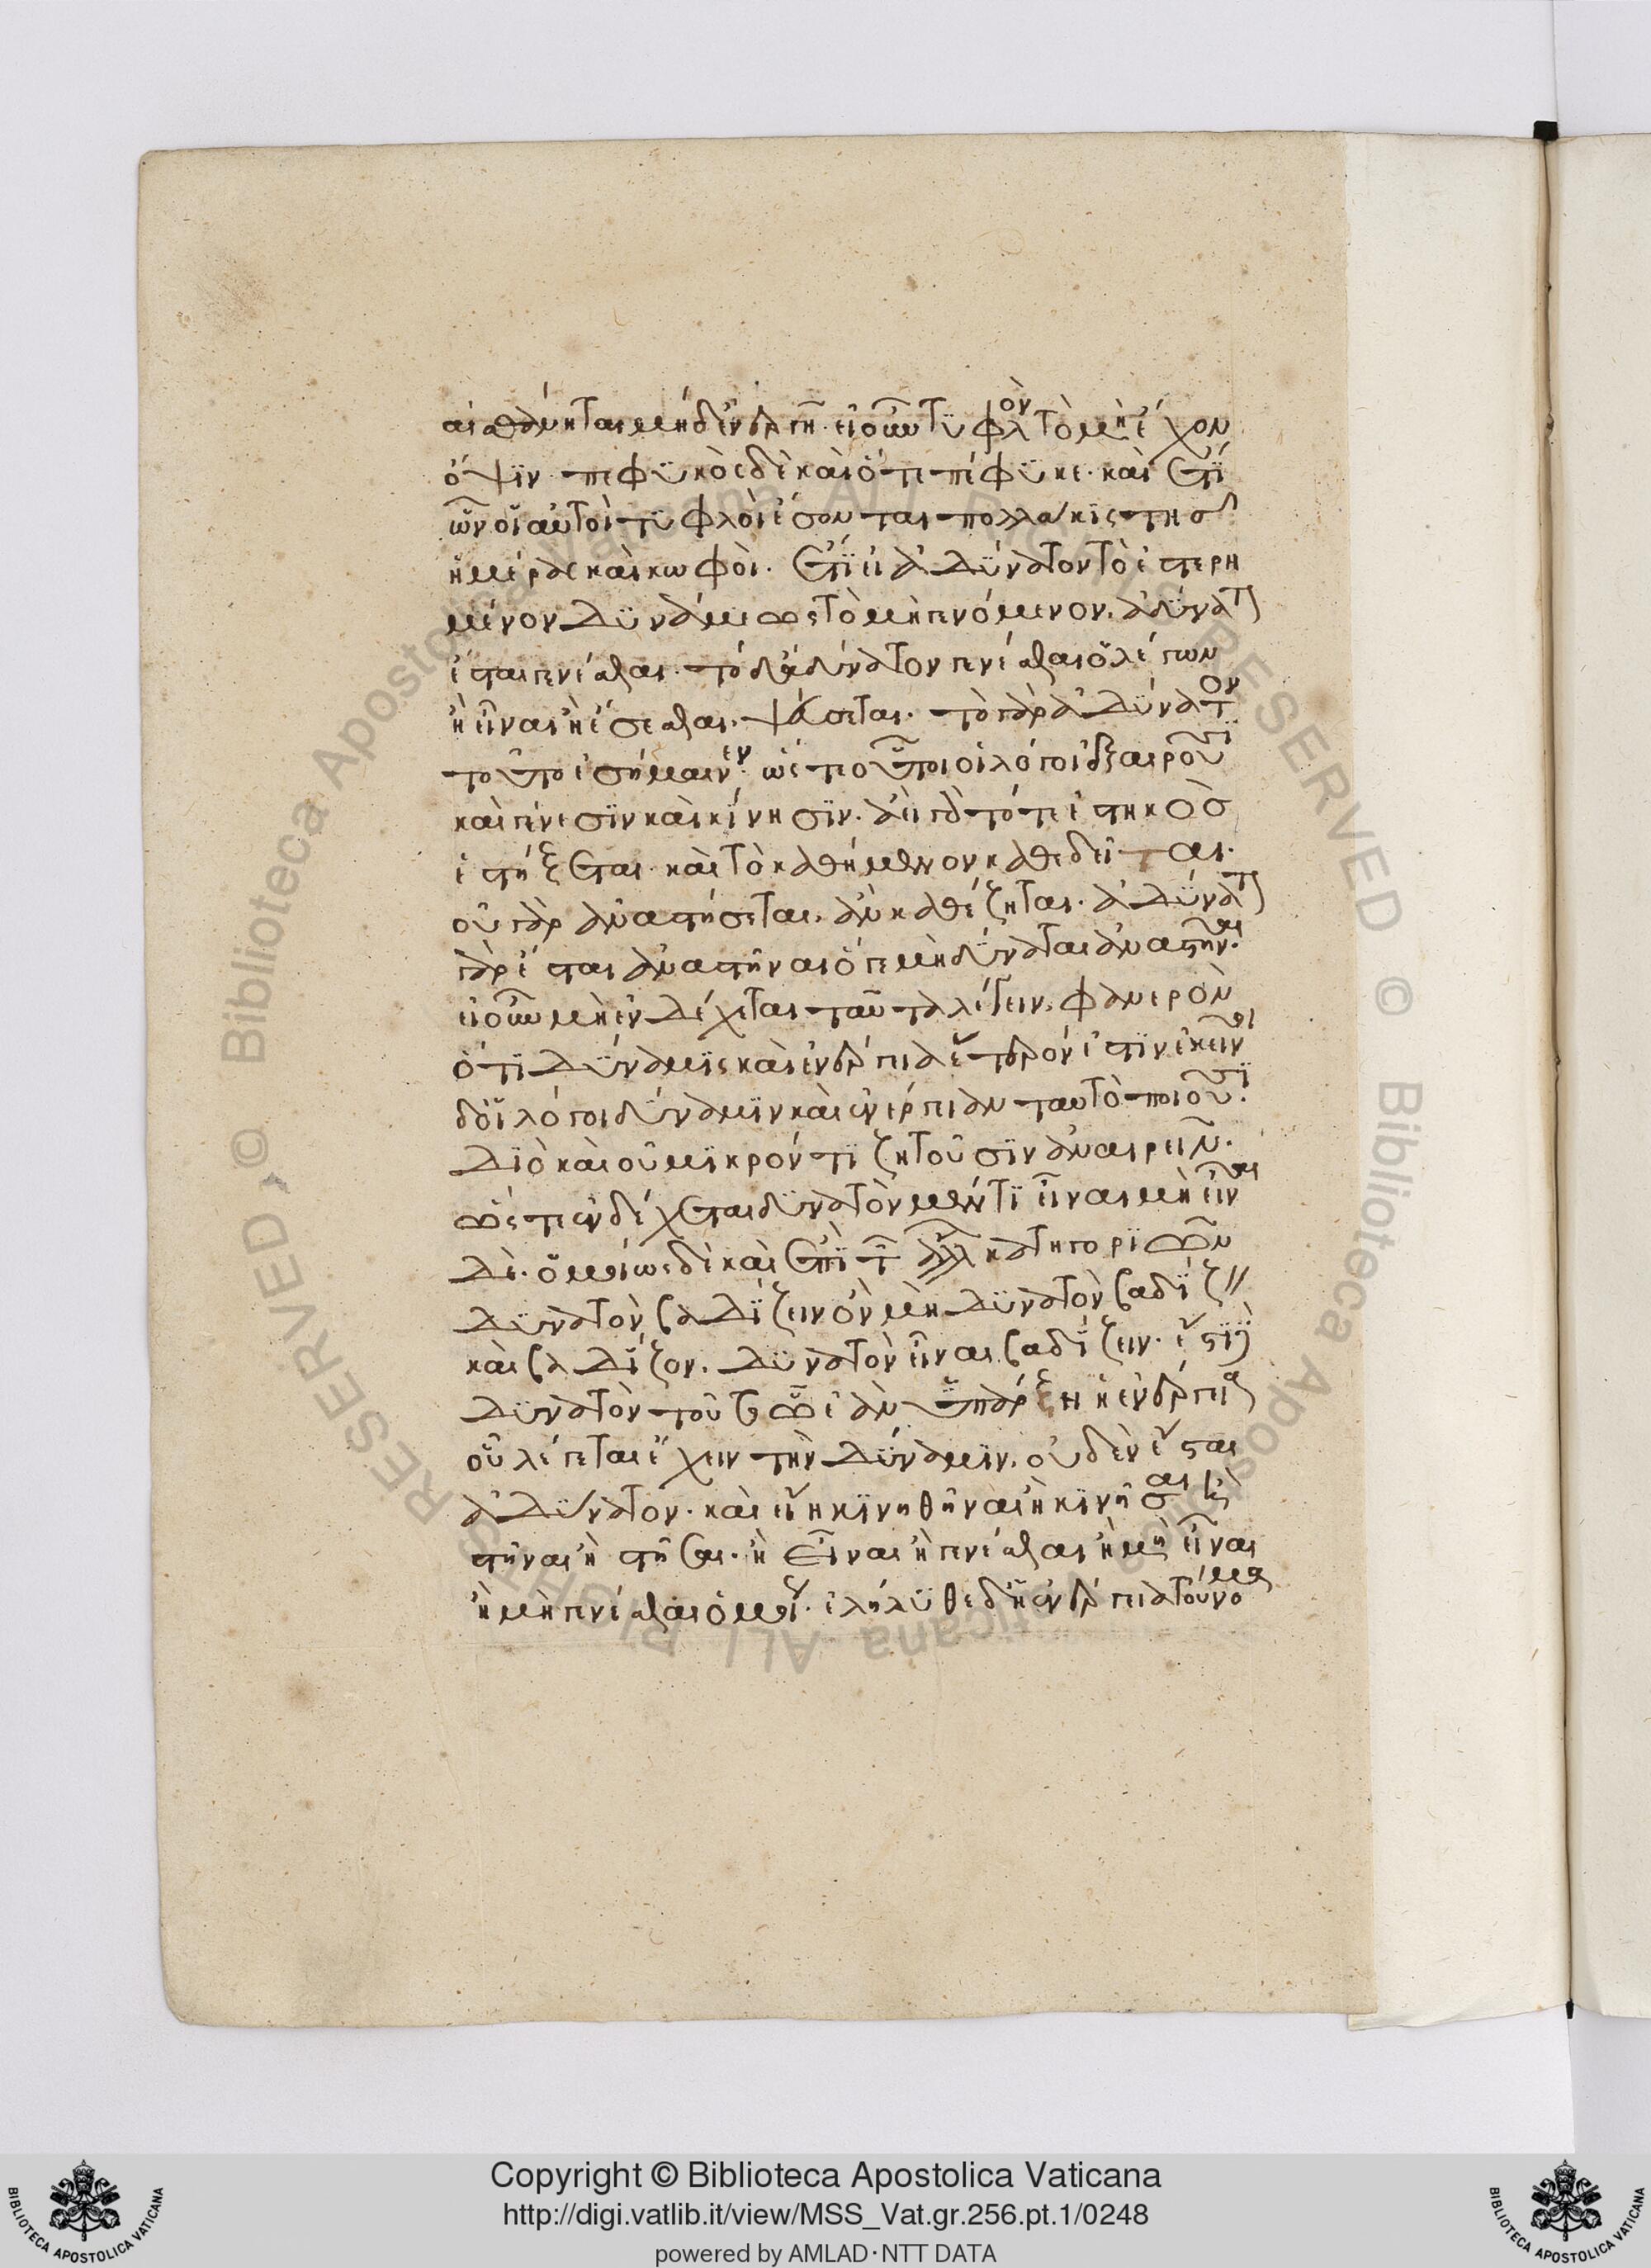 αἰσθάνηται μηδ' ἐνεργῆ. εἰ οὖν τυφλὸν τὸ μὴ ἔχον
ὄψιν πεφυκὸς δὲ καὶ ὅτε πέφυκε. καὶ ἔτι
ὂν οἱ αὐτοὶ τυφλοὶ ἔσονται πολλάκις τῆς
ἡμέρας καὶ κωφοί. ἔτι εἰ ἀδύνατον τὸ ἐστερη
μένον δυνάμεως τὸ μὴ γενόμενον. ἀδύνατον
ἔσται γενέσθαι. τὸ δ' ἀδύνατον γενέσθαι ὁ λέγων
ἢ εἶναι ἢ ἔσεσθαι. ψεύσεται. τὸ γὰρ ἀδύνατον
τοῦτο ἐσήμαινεν. ὥστε οὗτοι οἱ λόγοι ἐξαιροῦσι
καὶ γένεσιν καὶ κίνησιν. ἀεὶ γὰρ τό τε ἑστηκὸς
ἑστήξεται καὶ τὸ καθήμενον καθεδεῖται.
οὐ γὰρ ἀναστήσεται. ἂν καθέζηται. ἀδύνατον
γὰρ ἔσται ἀναστῆναι ὅ γε μὴ δύναται ἀναστῆναι.
εἰ οὖν μὴ ἐνδέχεται ταῦτα λέγειν. φανερὸν
ὅτι δύναμις καὶ ἐνέργεια ἕτερόν ἐστιν. ἐκεῖνοι
δ' οἱ λόγοι δύναμιν καὶ ἐνέργειαν ταὐτὸ ποιοῦσι.
Διὸ καὶ οὐ μικρόν τι ζητοῦσιν ἀναιρεῖν.
ὥστε ἐνδέχεται δυνατὸν μέν τι εἶναι μὴ εἶναι
δέ. ὁμοίως δὲ καὶ ἐπὶ τῶν ἄλλων κατηγοριῶν
δυνατὸν βαδίζειν ὂν μὴ δυνατὸν βαδίζειν
καὶ βαδίζον. δυνατὸν εἶναι βαδίζειν. ἔστι δὲ
δυνατὸν τοῦτο ᾧ ἐὰν ὑπάρξῃ ἡ ἐνέργεια
οὗ λέγεται ἔχειν τὴν δύναμιν. οὐδὲν ἔσται
ἀδύνατον. καὶ εἰ ἢ κινηθῆναι ἢ κινῆσαι ἢ
στῆναι ἢ στῆσαι. ἢ εἶναι ἢ γενέσθαι ἢ μὴ εἶναι
ἢ μὴ γενέσθαι ὁμοίως. ἐλήλυθε δ' ἡ ἐνέργεια τοὔνομα
Copyright © Biblioteca Apostolica Vaticana
http://digi.vatlib.it/view/MSS_Vat.gr.256.pt.1/0248
powered by AMLAD·NTT DATA